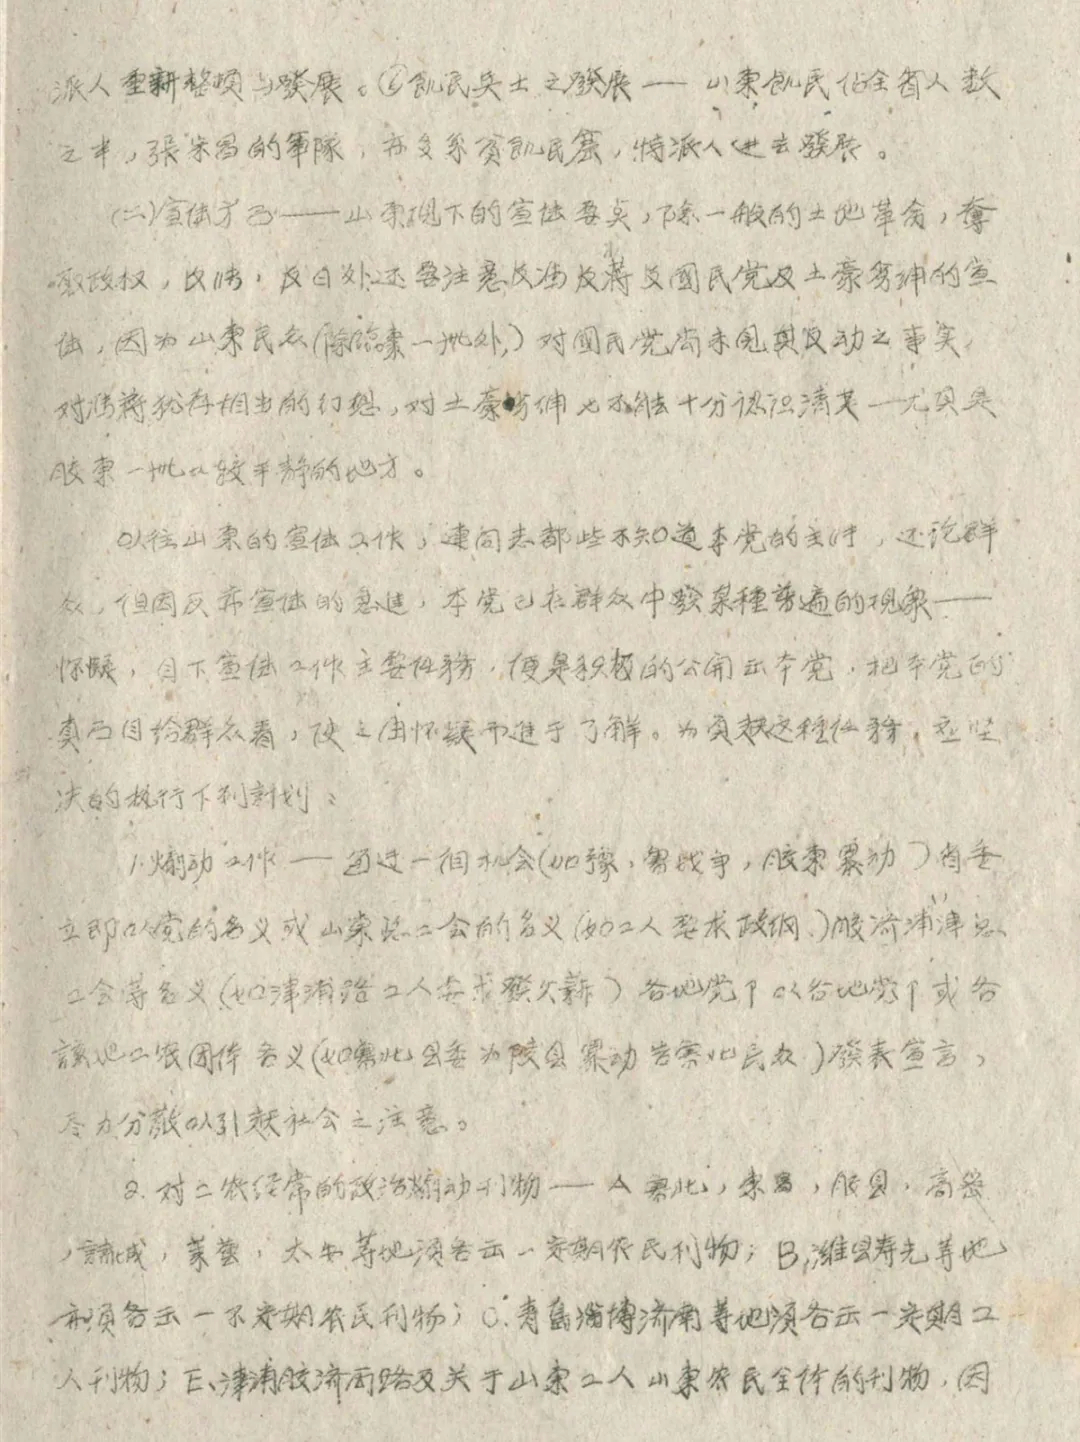 派人重新整頓与發展。⑥飢民兵士之發展——山東飢民佔全省人数
之半，張宗昌的軍隊，亦多系贫飢民窟，特派人进去發展。
(二)宣传方面——山東現下的宣传要点，除一般的土地革命，奪
取政权，反 ，反日外还要注意反冯反蒋反國民党及土豪劣绅的宣
传，因为山東民众(除 一批外)对國民党尚未見其反动之事实，
对冯蒋犹存相当的幻想，对土豪劣绅也不能十分认识清楚—尤其是
胶東一批比较平静的地方。
以往山東的宣传工作，連同志都些不知道本党的主张，还说群
众，但因反帝宣传的急进，本党已在群众中發某種普遍的現象——
怀疑，目下宣传工作主要任務，便是积极的公开出本党，把本党的
真面目给群众看，使之由怀疑而進于了解。为負起这種任務，应坚
决的执行下列計划：
1.煽动工作——通过一個机会(如 战争，胶東暴动)省委
立即以党的名义或山東总工会的名义(如工人要求政纲)胶济浦津总
工会等名义(如津浦路工人要求發欠薪)各地党个以各地党个或各
該地工农团体名义(如 北县委为陵县暴动告 北民众)發表宣言，
尽力分散以引起社会之注意。
2.对工农经常的政治煽动刊物——A 北，東昌，胶县，高密
，諸城，莱芜，太安等地須各出一定期农民刊物；B,潍县寿光等地
亦須各出一不定期农民刊物；C.青島淄博济南等地須各出一定期工
人刊物；E、津浦胶济两路及关于山東工人山東农民全体的刊物，因